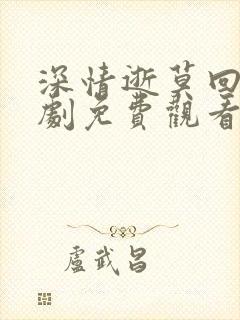 深情逝莫回
劇免費觀看
盧武昌